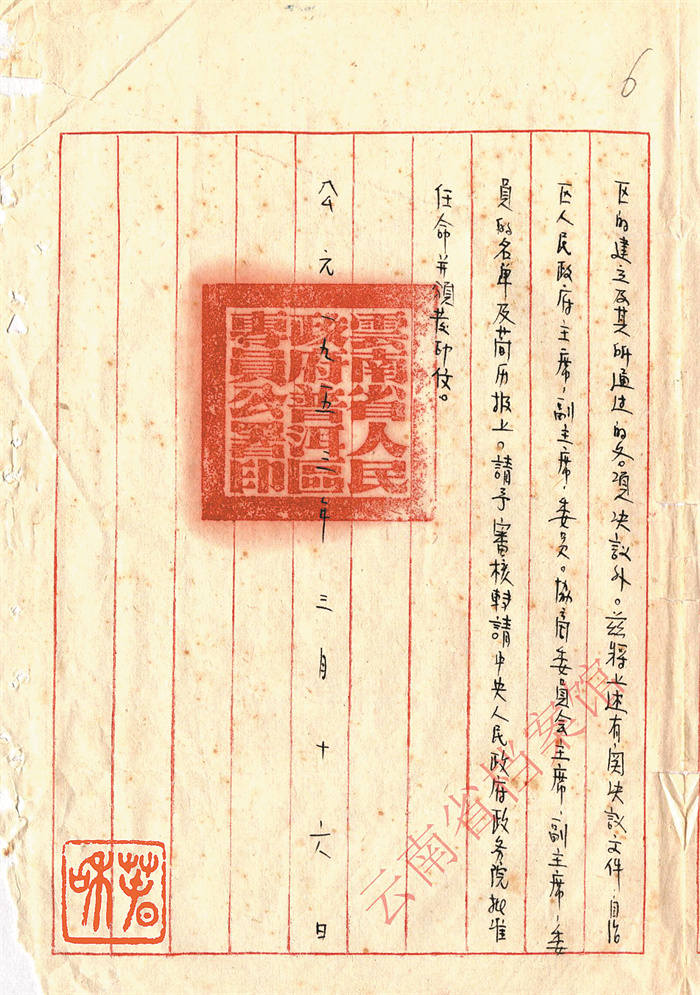 6
区的建立及其所通过的各项决议外。兹将上述有関决议文件,自治
区人民政府主席,副主席,委员。協商委員会主席,副主席,委
員的名单及简历报上。請予審核转請中央人民政府政务院批准
任命并颁发印信。
公元一九五三年三月十六日
雲南省人民
政府普洱區
專員公署印
云南省档案馆